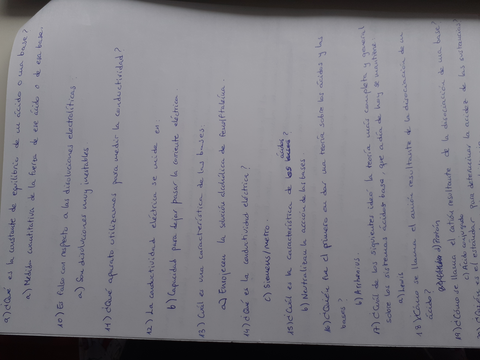 9) ¿Qué es la constante de equilibrio de un ácido o una base?
a) Medida cuantitativa de la fuerza de ese ácido o de esa base.
10) Es falso con respecto a las disoluciones electrolíticas:
a) Son disoluciones muy inestables
11) ¿Qué aparato utilizamos para medir la conductividad?
12) La conductividad eléctrica se mide en:
b) Capacidad para dejar pasar la corriente eléctrica
13) Cuál es una característica de las bases:
a) Enrojecen la solución alcohólica de fenolftaleína
14) ¿Qué es la conductividad eléctrica?
c) Siemens/metro.
15) ¿Cuál es la característica de ácidos?
b) Neutralizan la acción de las bases
16) ¿Quién fue el primero en dar una teoría sobre los ácidos y las
bases?
b) Arrhenius
17) ¿Cuál de los siguientes ideó la teoría más completa y general
sobre los sistemas ácido-base, que a día de hoy se mantiene
a) Lewis
18) ¿Cómo se llama el anión resultante de la disociación de un
ácido?
19) ¿Cómo se llama el catión resultante de la disociación de una base?
c) Ácido conjugado
el estándar para determinar la acidez de las sustancias?